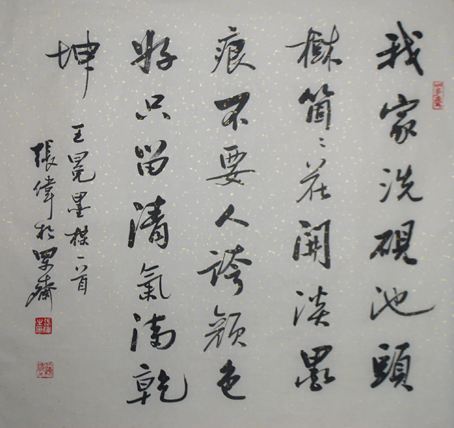 我家洗硯池頭
樹箇〻花開淡墨
痕不要人誇顔色
好只留清氣滿乾
坤
王冕墨楳一首
張偉於齋